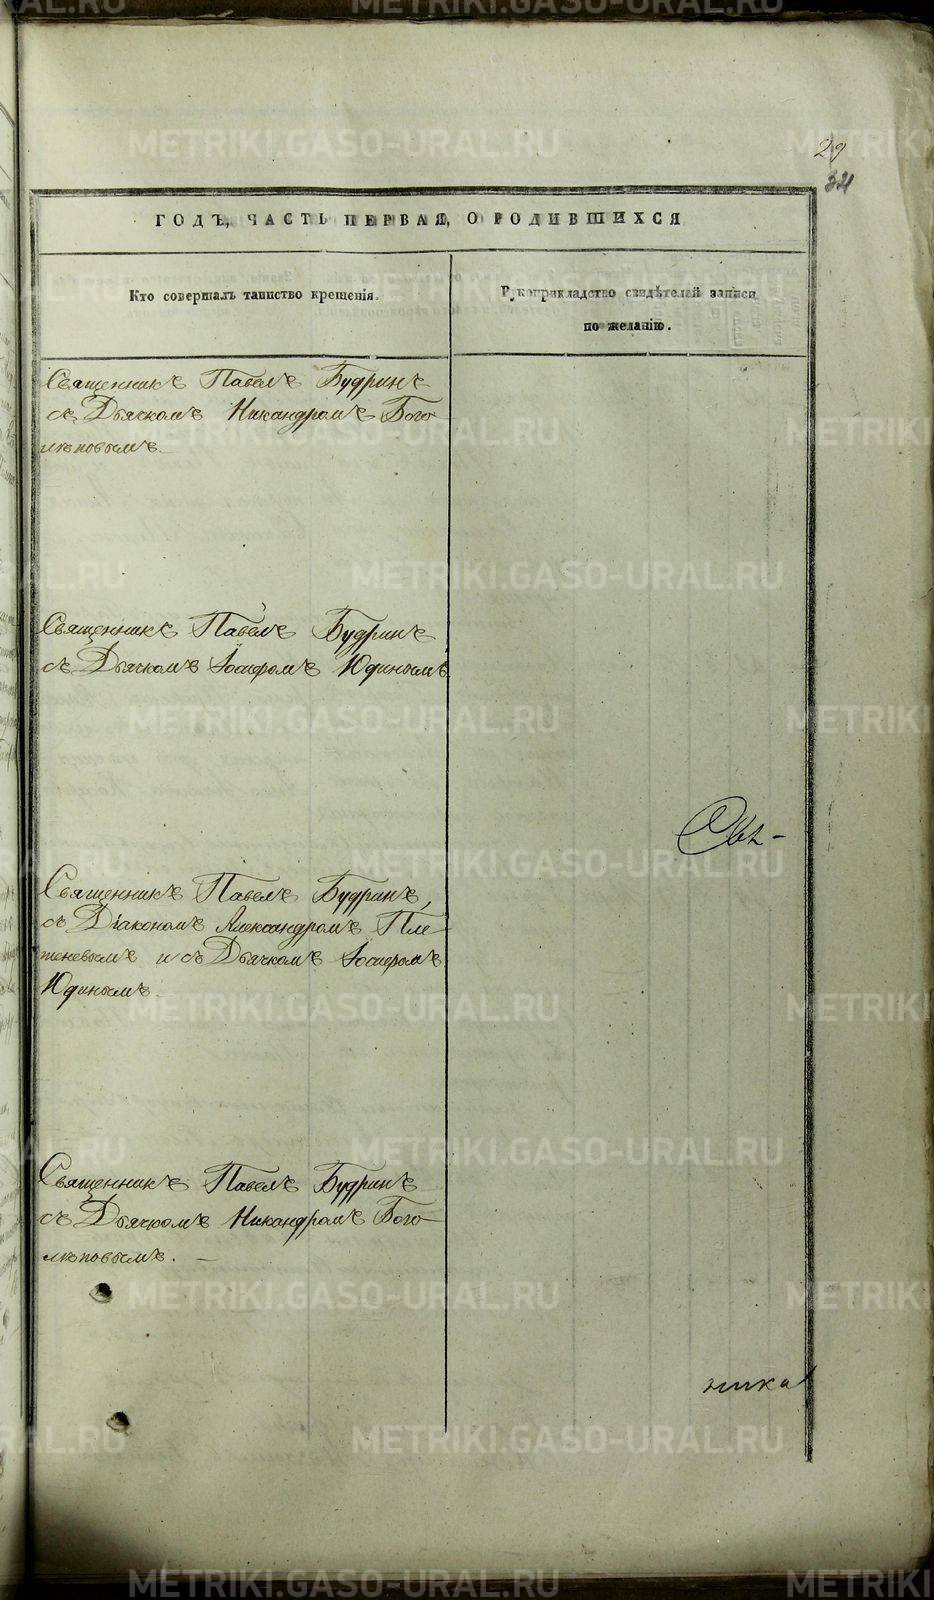 29
34
ГОДЪ, ЧАСТЬ ПЕРВАЯ, О РОДИВШИХСЯ
Кто совершалъ таинство крещенія.
Рукоприкладство свидѣтелей записи
по желанію.
Священникъ Павелъ Будринъ
съ Дьячкомъ Никандромъ Бого-
лѣповымъ.
Священникъ Павелъ Будринъ
съ Дьячкомъ Іосифомъ Юдинымъ.
Свя-
Священникъ Павелъ Будринъ,
съ Діакономъ Александромъ Пле
теневымъ и съ Дьячкомъ Іосифомъ
Юдинымъ
Священникъ Павелъ Будринъ
съ Дьячкомъ Никандромъ Бого-
лѣповымъ. —
ника
METRIKI.GASO-URAL.RU